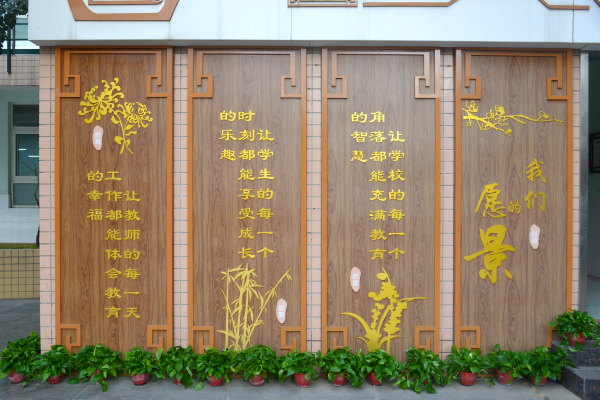 我们
的
愿景
让学校的每一个
角落都能充满教育
的智慧
让学生的每一个
时刻都能享受成长
的乐趣
让教师的每一天
工作都能体会教育
的幸福